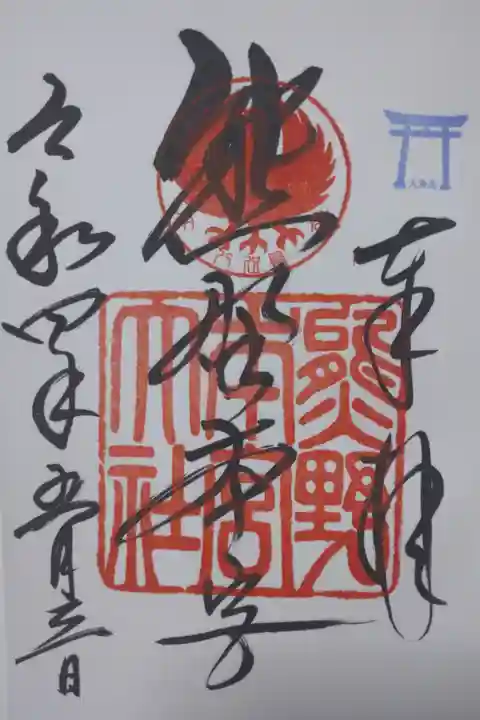 奉拝
熊野本宮
令和四年五月三日
熊野
本宮
大社
大斎原